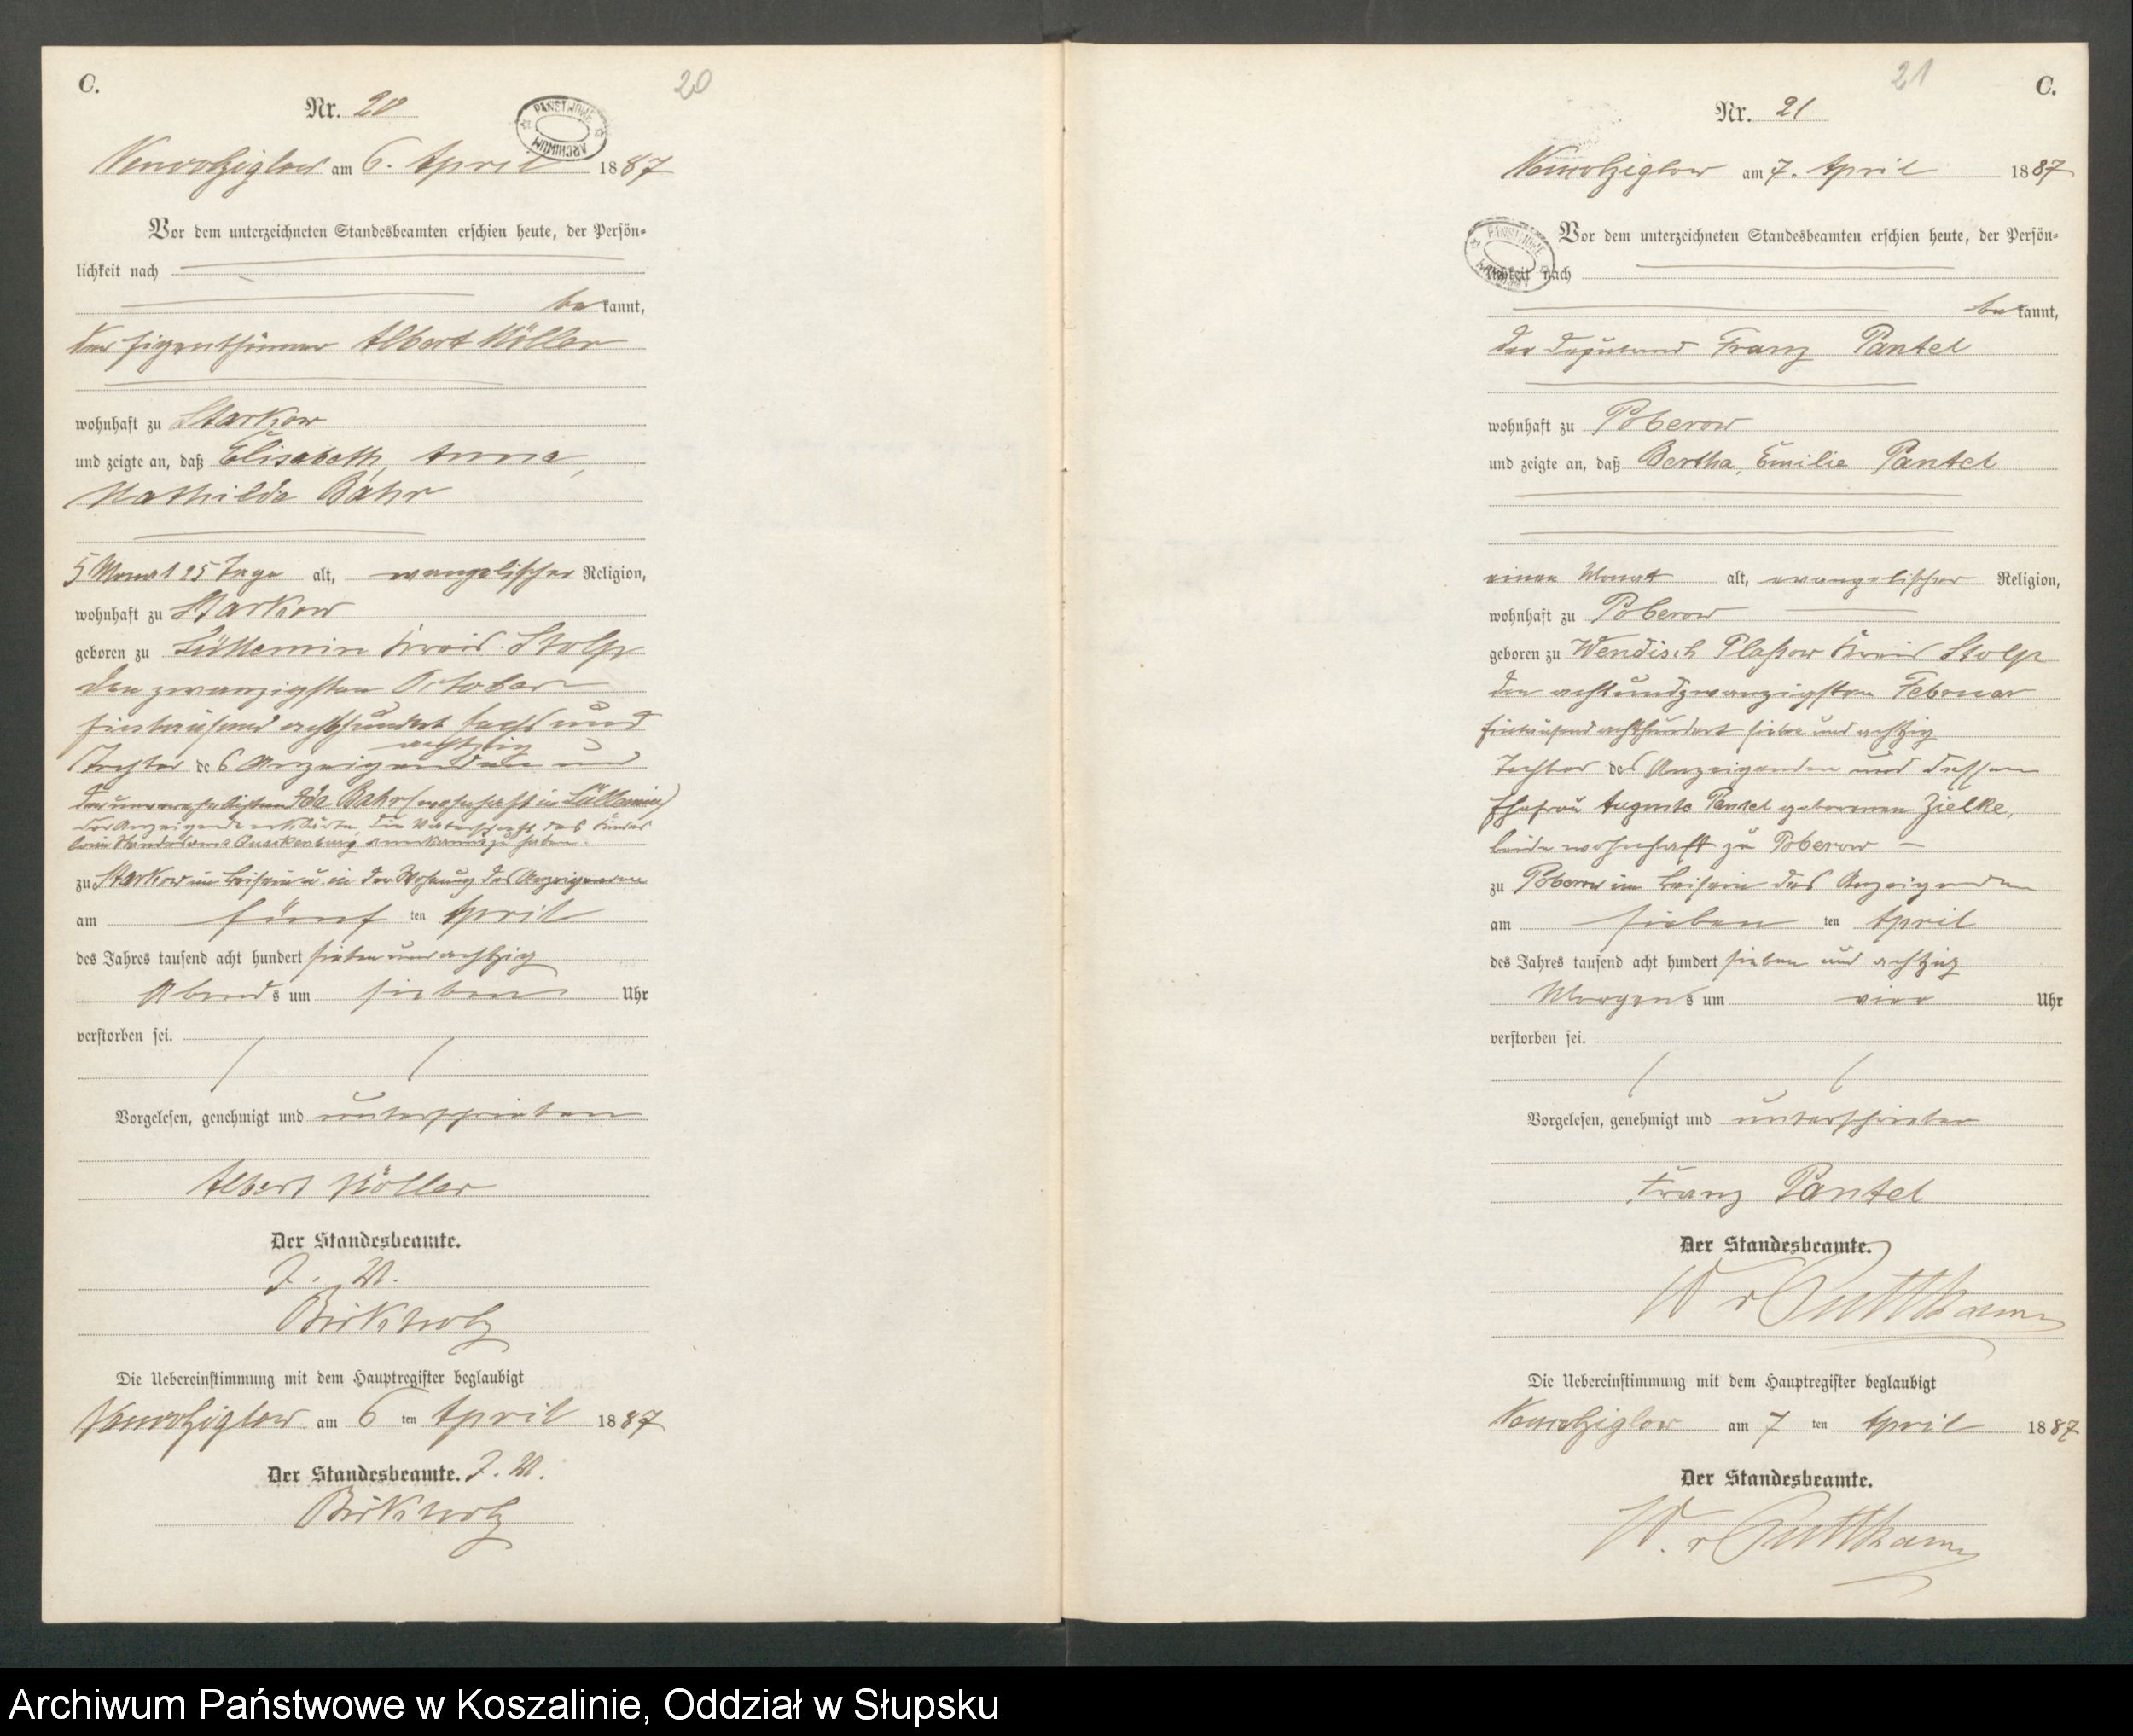 C.
20
Nr. 20
PAŃSTWOWE ARCHIWUM
Nenwolziglow am 6. April 1887
Vor dem unterzeichneten Standesbeamten erschien heute, der Persön=
lichkeit nach
be kannt,
der Eigenthümer Albert Möller
wohnhaft zu Starkow
und zeigte an, daß Elisabeth, Anna,
Mathilde Bahr
5 Monat 15 Tage alt, evangelischer Religion,
wohnhaft zu Starkow
geboren zu Lüllemin Kreis Stolp
den zwanzigsten October
eintausend achthundert sechs und
achtzig
Tochter des Anzeigenden und
der unverehelichten Ida Bahr (wohnhaft in Lüllemin)
der Anzeigende erklärte, die Vaterschaft des Kindes
beim Standesamt Quackenburg anerkannt zu haben.
zu Starkow im Beisein u. in der Wohnung des Anzeigenden
am fünf ten April
des Jahres tausend acht hundert sieben und achtzig
Abends um sieben Uhr
verstorben sei.
Vorgelesen, genehmigt und unterschrieben
Albert Möller
Der Standesbeamte.
J. V.
Birkholz
Die Uebereinstimmung mit dem Hauptregister beglaubigt
Nenwolziglow am 6 ten April 1887
Der Standesbeamte. J. V.
Birkholz
21
C.
Nr. 21
Nenwolziglow am 7. April 1887
PAŃSTWOWE ARCHIWUM
Vor dem unterzeichneten Standesbeamten erschien heute, der Persön=
lichkeit nach
be kannt,
der Deputand Franz Pantel
wohnhaft zu Poberow
und zeigte an, daß Bertha, Emilie Pantel
einen Monat alt, evangelischer Religion,
wohnhaft zu Poberow
geboren zu Wendisch Plaßow Kreis Stolp
den achtundzwanzigsten Februar
eintausend achthundert sieben und achtzig
Tochter des Anzeigenden und dessen
Ehefrau Auguste Pantel geborenen Zielke,
beide wohnhaft zu Poberow
zu Poberow im Beisein des Anzeigenden
am sieben ten April
des Jahres tausend acht hundert sieben und achtzig
Morgens um vier Uhr
verstorben sei.
Vorgelesen, genehmigt und unterschrieben
Franz Pantel
Der Standesbeamte.
W v Puttkamer
Die Uebereinstimmung mit dem Hauptregister beglaubigt
Nenwolziglow am 7 ten April 1887
Der Standesbeamte.
W. v Puttkamer
Archiwum Państwowe w Koszalinie, Oddział w Słupsku